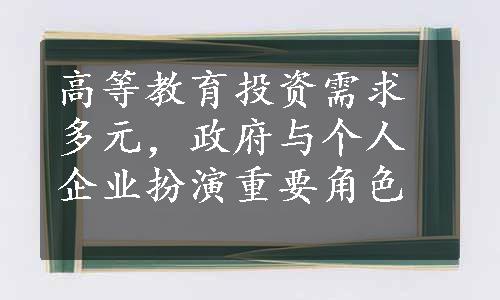 高等教育投资需求
多元，政府与个人
企业扮演重要角色